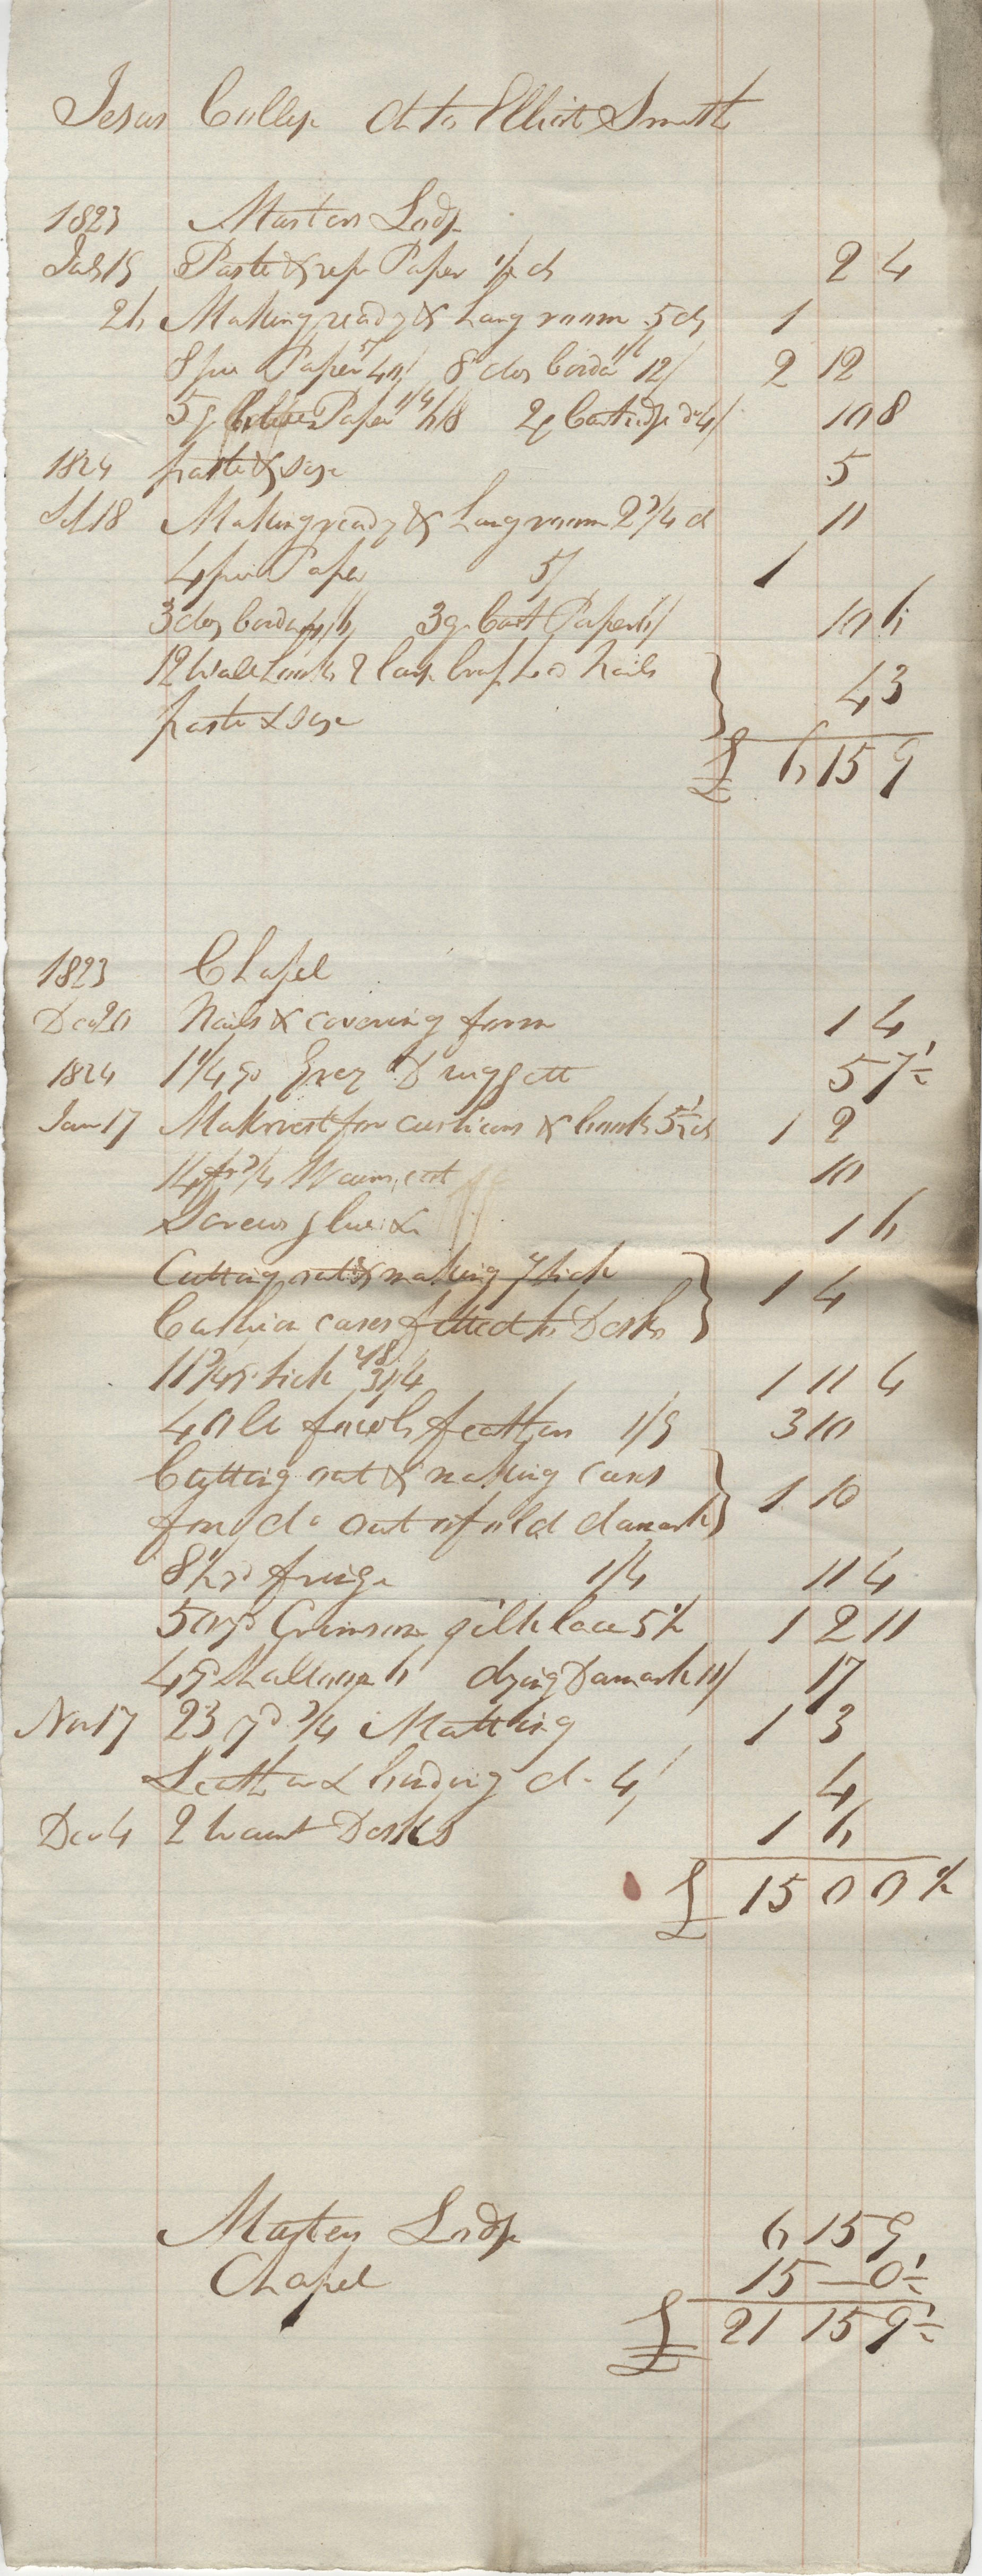 Jesus College Dr to Elliot Smith
1823 Masters Lodge
July 19 Paste & repr Paper 1/2 d 2 4
26 Making ready & hang room 5 ds 1
8 pie Paper 5/ 40/ 8 doz bordr 1/6 12/ 2 12
5 q Paper 1/4 6/8 2 q Cartridge do 4/ 10 8
1824 paste & size 5
18 Making ready & hang room 2 3/4 d 11
4 pie Paper 5/ 1
3 doz bordr 3 q Cart Paper 6/ 10 6
12 Wall hooks & large brass hd nails
paste & size 4 3
£ 6 15 9
1823 Chapel
Dec 20 Nails & covering form 1 4
1824 1 1/4 yd Grey Druggett 5 7 1/2
Jan 17 Mak rest for cusheons & books 5 1/2 ds 1 2
14 ft 3/4 Wainscot 10
Screws glue & 1 6
Cutting out & making 7 tick
Cushion cases fitted to Desks 1 4
11 3/4 yd tick 2/8 31/4 1 11 4
40 lb fowls feathers 1/9 3 10
Cutting out & making cases
for do out of old damask 1 10
8 1/2 yd fringe 1/4 11 4
50 yd Crimson silk lace 5 1/2 1 2 11
4 yd Shalloon 6 dying Damask 11/ 17
Nov 17 23 yd 3/4 Matting 1 3
Leather & binding do 4/ 4
Dec 4 2 Desks 1 6
£ 15 0 0 1/2
Masters Lodge 6 15 9
Chapel 15 — 0 1/2
£ 21 15 9 1/2